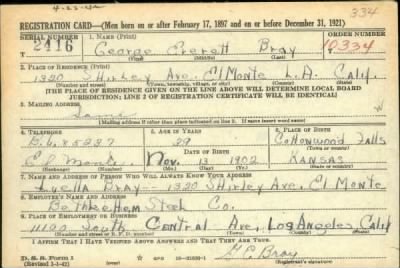 4-23-42
334
REGISTRATION CARD—(Men born on or after February 17, 1897 and on or before December 31, 1921)
SERIAL NUMBER 1. NAME (Print) ORDER NUMBER
2416 George Everett Bray 10334
(First) (Middle) (Last)
2. PLACE OF RESIDENCE (Print)
1320 Shirley Ave. El Monte L.A. Calif.
(Number and street) (Town, township, village, or city) (County) (State)
[THE PLACE OF RESIDENCE GIVEN ON THE LINE ABOVE WILL DETERMINE LOCAL BOARD
JURISDICTION; LINE 2 OF REGISTRATION CERTIFICATE WILL BE IDENTICAL]
3. MAILING ADDRESS
Same
[Mailing address if other than place indicated on line 2. If same insert word same]
4. TELEPHONE 5. AGE IN YEARS 6. PLACE OF BIRTH
39 Cottonwood Falls
DATE OF BIRTH (Town or county)
El Monte Nov. 13 1902 Kansas
(Exchange) (Number) (Mo.) (Day) (Yr.) (State or country)
7. NAME AND ADDRESS OF PERSON WHO WILL ALWAYS KNOW YOUR ADDRESS
Luella Bray — 1320 Shirley Ave. El Monte
8. EMPLOYER'S NAME AND ADDRESS
Bethlehem Steel Co.
9. PLACE OF EMPLOYMENT OR BUSINESS
South Central Ave, Los Angeles Calif
(Number and street or R. F. D. number) (Town) (County) (State)
I AFFIRM THAT I HAVE VERIFIED ABOVE ANSWERS AND THAT THEY ARE TRUE.
D. S. S. Form 1
(Revised 3-1-42) (over) G E Bray